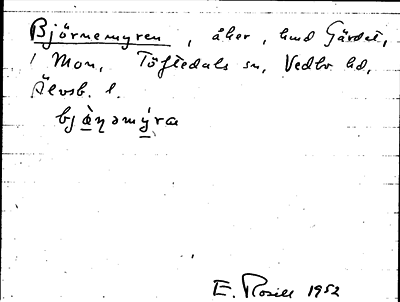 Björnemyren, åker, hmd Gärdet,
1 Mon, Töftedals sn, Vedbo hd,
Älvsb. l.
bjὰ̠ṇəmý̠ra
E. Rosell 1952